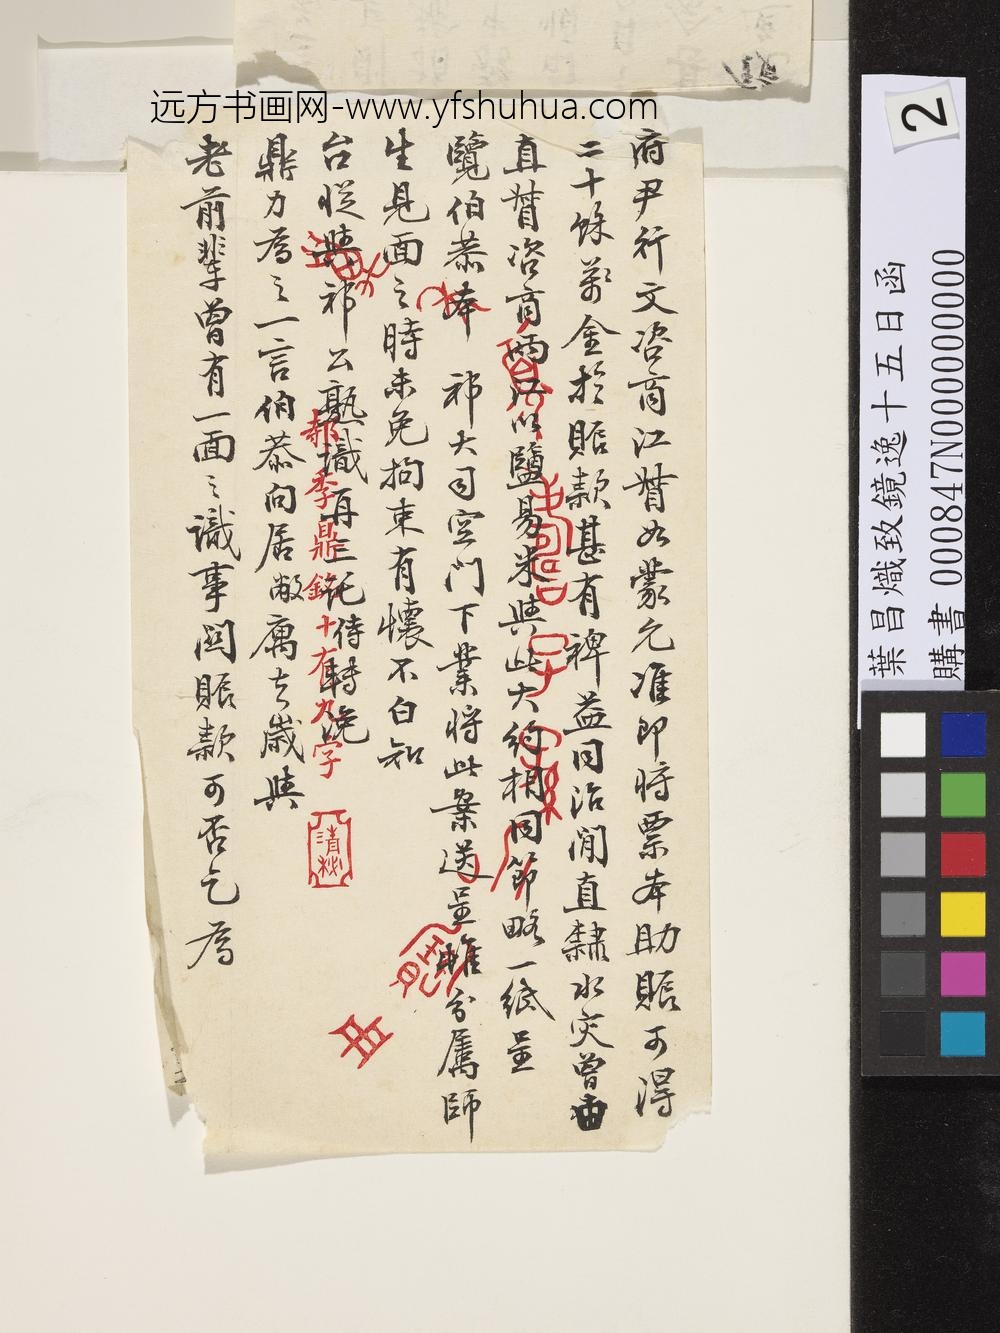 远方书画网-www.yfshuhua.com
府尹行文咨商江督如蒙允准即将票本助賑可得
二十餘萬金於賑款甚有裨益同治間直隸水災曾由
直督咨商兩江以鹽易米與此大約相同節略一紙呈
覽伯恭本祁大司空門下業將此案送呈惟分屬師
生見面之時未免拘束有懷不白知
台從與祁公熟識再三托侍轉浼
鼎力為之一言伯恭向居敝寓去歲與
老前輩曾有一面之識事関賑款可否乞為
郝季鼎銘十有九字
清秘
2
葉昌熾致鏡逸十五日函
購書 000847N000000000